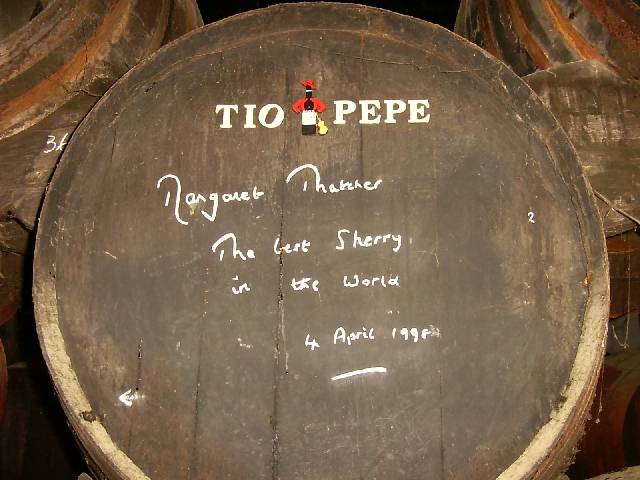 TIO PEPE
Margaret Thatcher
The best Sherry
in the World
4 April 1998
2